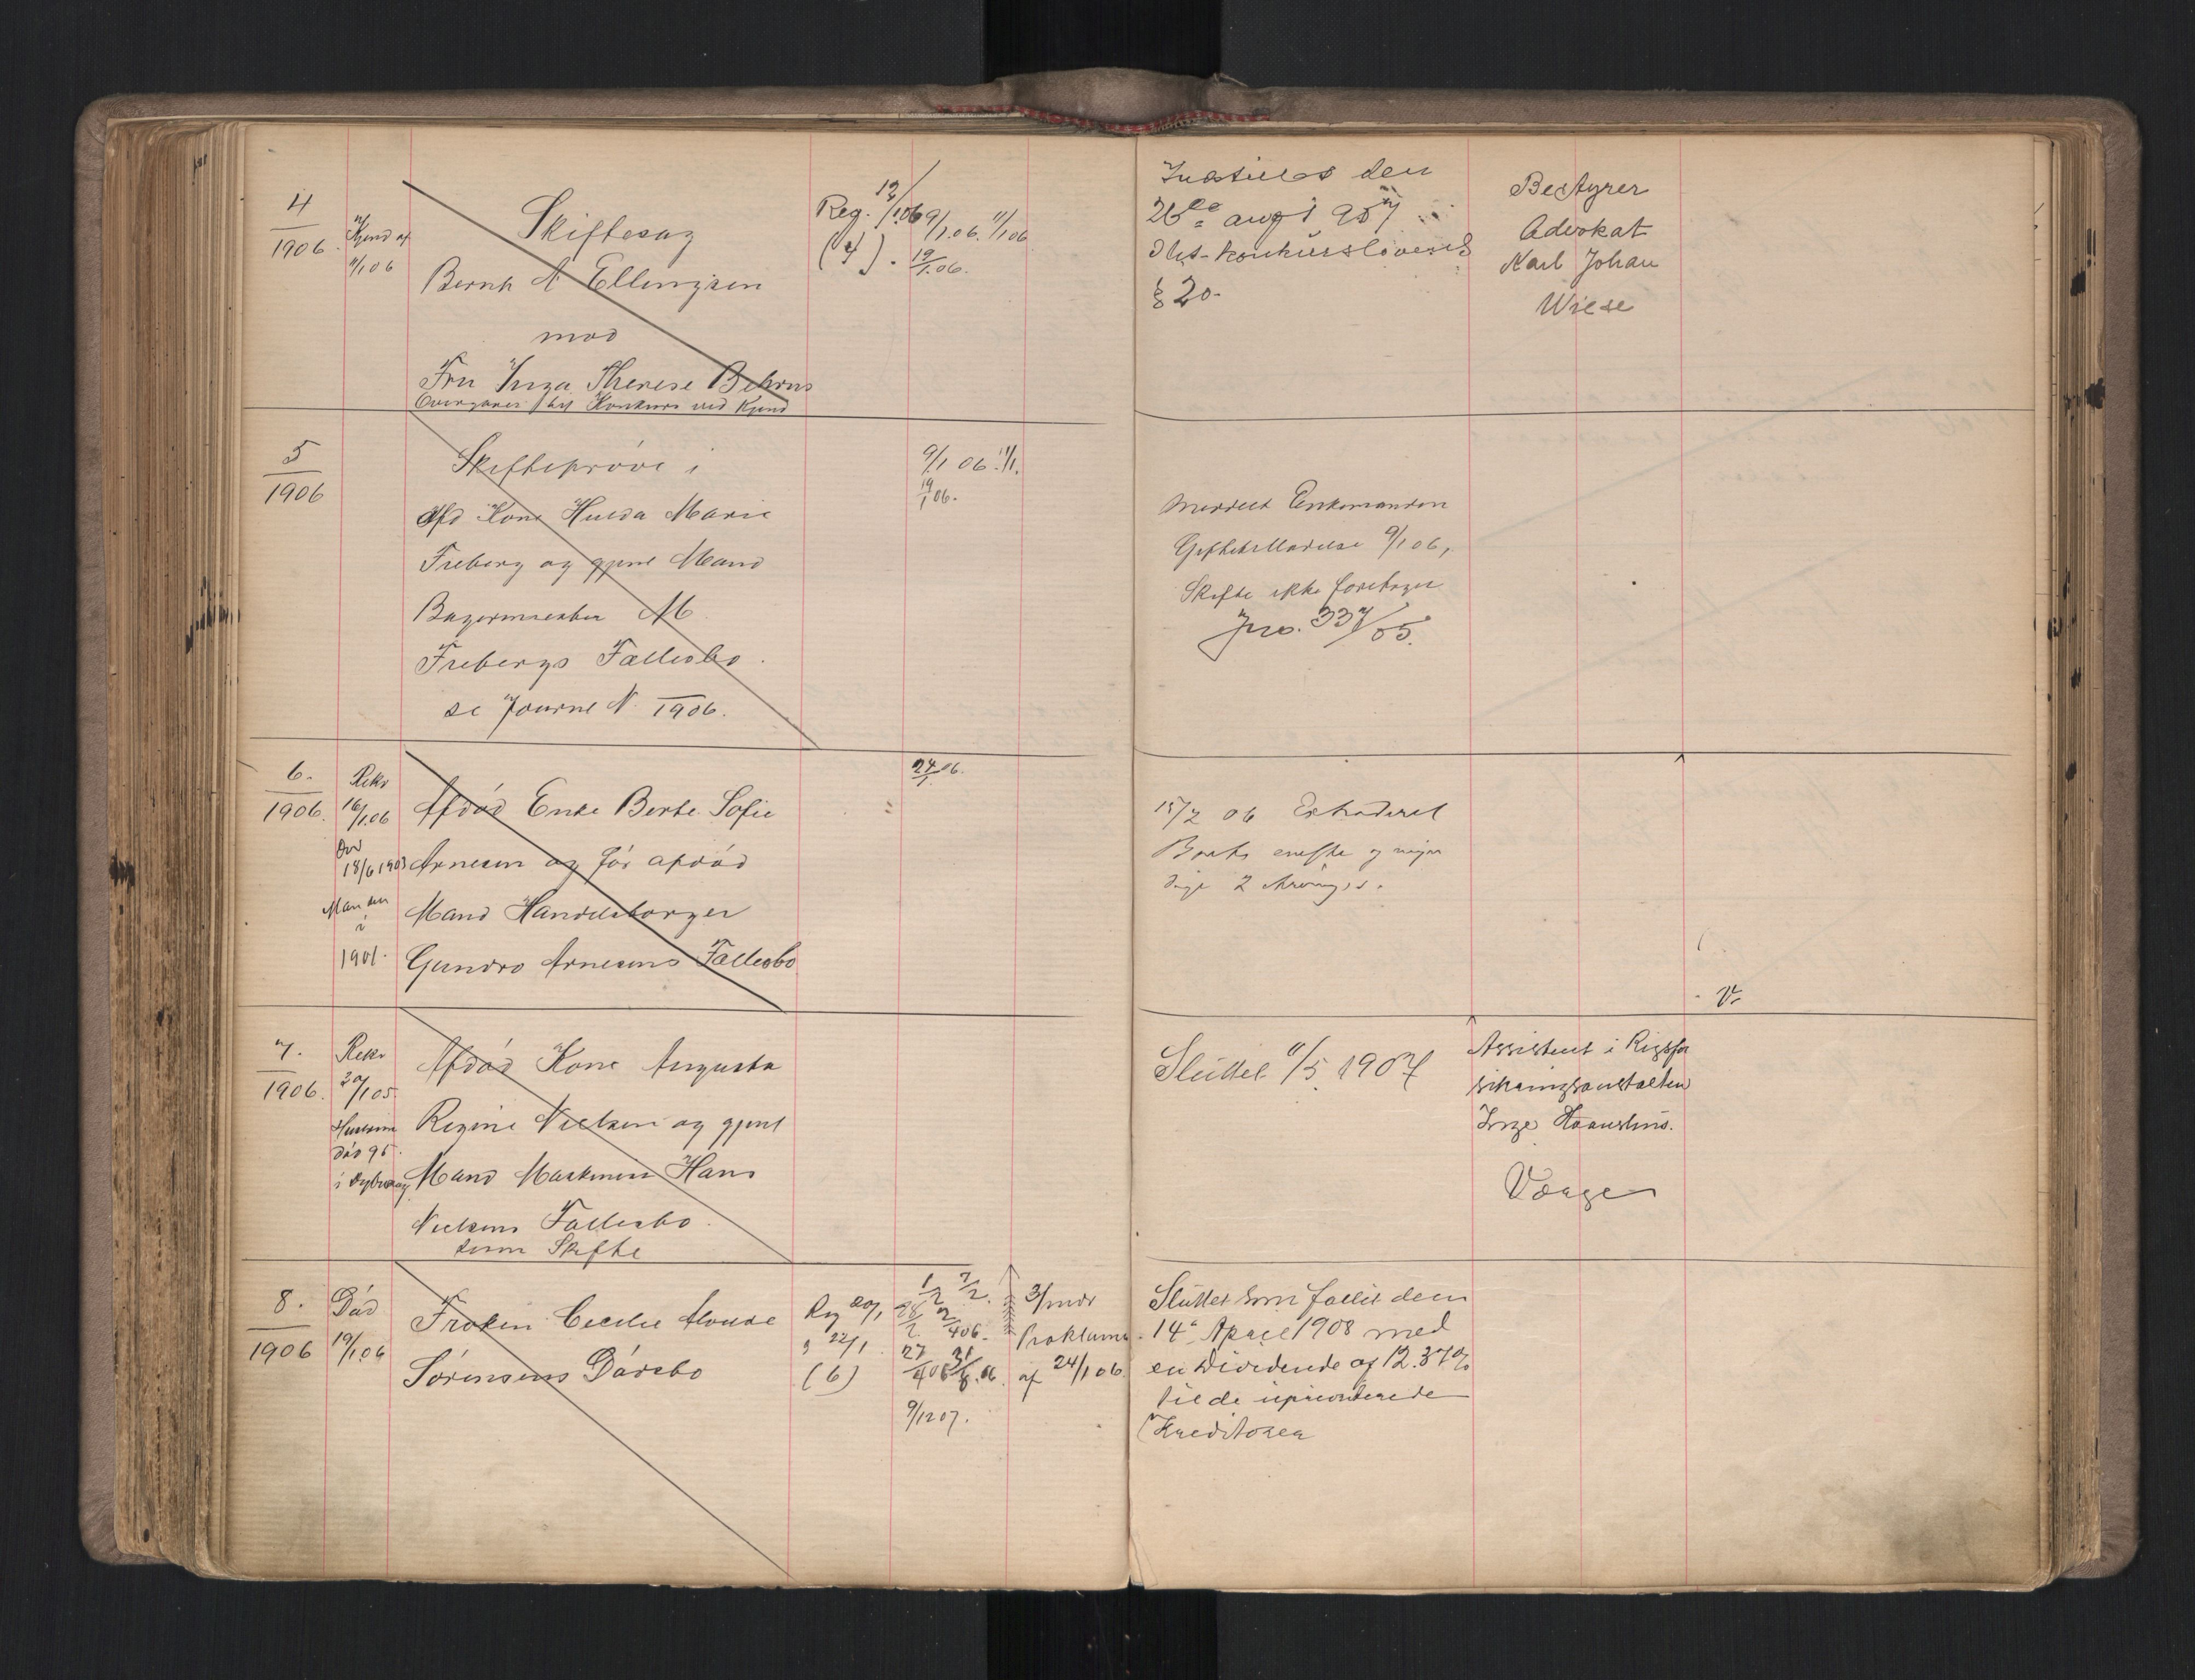 4
1906
Kjend af
11/1 06
Skiftesag
Bernh A Ellingsen
mod
Fru Inga Therese Behrns
Overgaaet til Konkurs ved Kjend
Reg. 12/1 06
(4).
9/1.06. 11/1 06
19/1.06.
Indstilles den
26de aug 1907
Iht. Konkurslovens
§ 20.
Bestyrer
Advokat
Karl Johan
Wiese
5
1906
Skifteprøve i
Afd Kone Hulda Marie
Freberg og gjenl Mand
Bagermester M
Frebergs Fællesbo.
se Journl N. 1906.
9/1 06. 11/1.
19/1 06.
Meddelt Enkemanden
Giftetilladelse 9/1 06,
Skifte ikke foretaget
Jno. 337/05.
6.
1906.
Rekv
16/1.06
Død
18/6 1903
Manden
i
1901.
Afdød Enke Berte Sofie
Arnesen og før afdød
Mand Handelsborger
Gundro Arnesens Fællesbo
24/1 06.
15/2 06 Extraderet
Boets eneste og myn
dige 2 Arvinger.
V.
7.
1906.
Rekv
20/1 05
Hustruen
død 95.
Afdød Kone Augusta
Regine Nielsen og gjenl
Mand Maskinist Hans
Nielsens Fællesbo.
Slüttet 11/5 1907
Assistent i Rigsfor
sikringsanstalten
Inge
Vaage
8.
1906
Død
19/1.06
Frøken Cecilie Alvilde
Sørensens Dødsbo
Reg 20/1
" 22/1
(6)
1/2 7/2.
9/12 07.
3/mdr
Proklama
af 24/1 06.
Slüttet som fallit den
14de April 1908 med
en Dividende af 12.37%
til de uprioriterede
Kreditorer